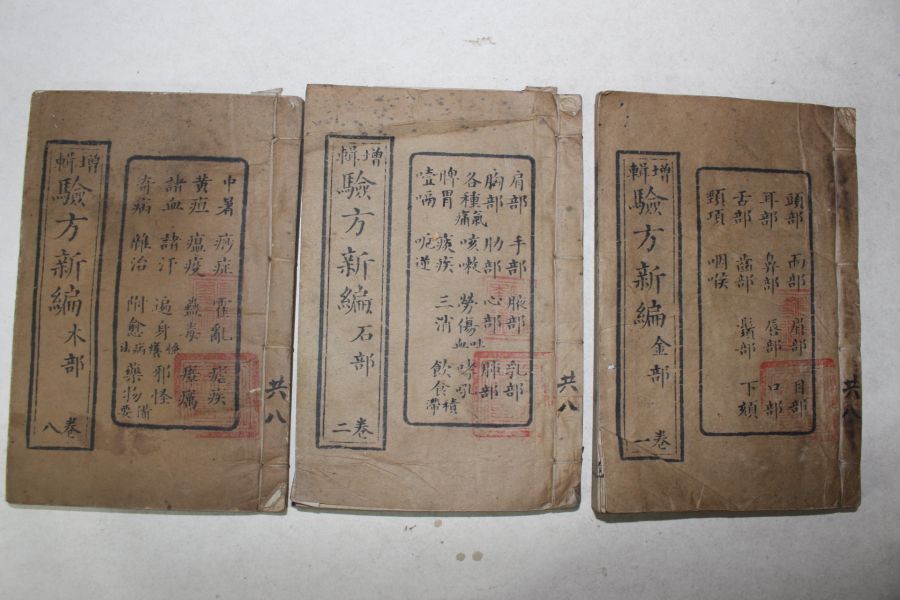 共八
頭部 面部 眉部 目部
耳部 鼻部 唇部 口部
舌部 齒部 鬚部 下頦
頸項 咽喉
增輯
驗方新編金部
卷一
共八
肩部 手部 腋部 乳部
胸部 肋部 心部 肺部
各種氣痛 咳嗽 勞傷吐血 哮吼
脾胃 痰疾 三消 飲食積滯
噎嗝 呃逆
增輯
驗方新編石部
卷二
共八
中暑 痧症 霍亂 瘧疾
黃疸 瘟疫 蠱毒
諸血 諸汗 遍身 邪怪
奇病 雜治 附愈病法 藥物備要
增輯
驗方新編木部
卷八